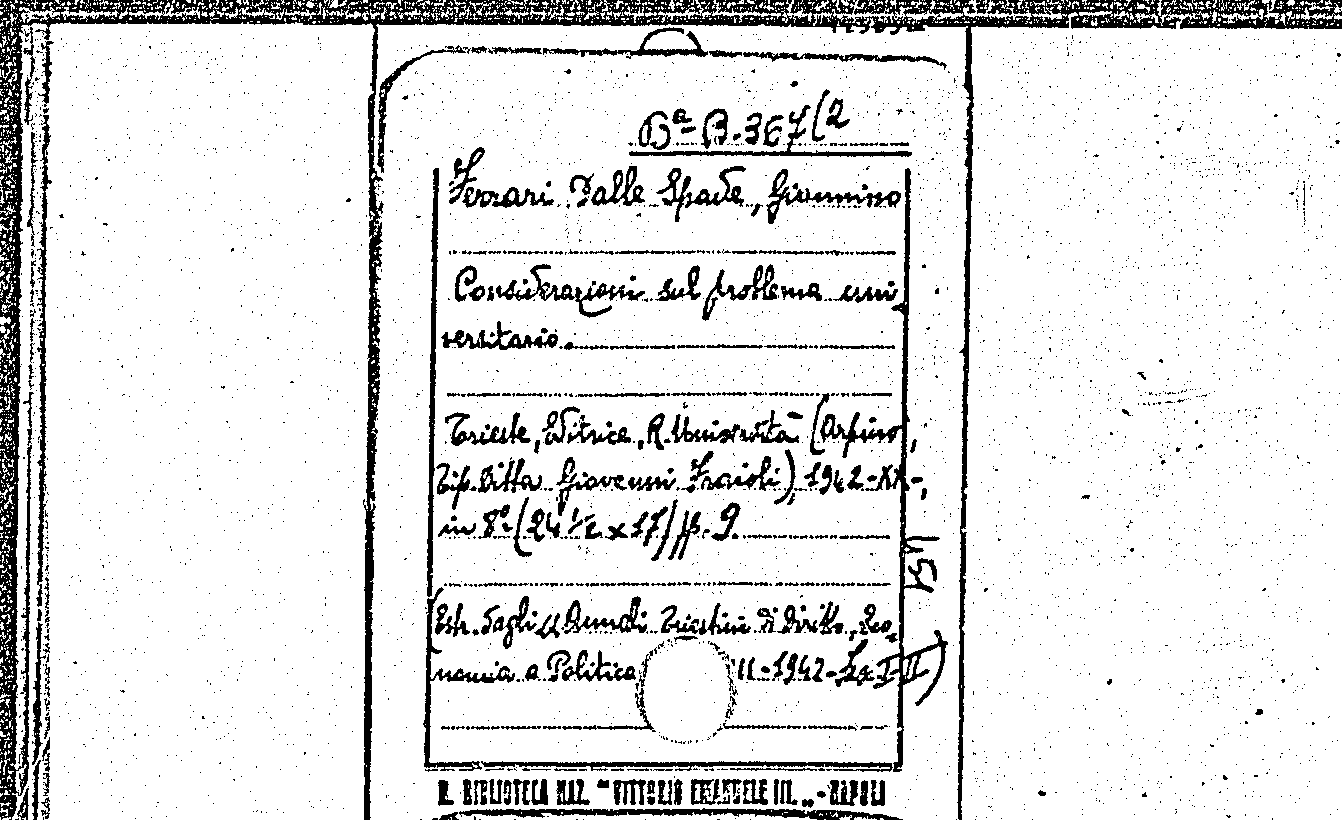 Bª B.367(2
Ferrari Dalle Spade, Giannino
Considerazioni sul problema uni-
versitario.
Trieste, Editrice, R. Università (Arpino,
Tip. Ditta Giovanni Fraioli), 1942-XX-,
in 8º (24 ½ x 17) pp. 9.
(Estr. dagli "Annali Triestini di Diritto, Eco-
nomia e Politica 1942- I-II)
R. BIBLIOTECA NAZ. "VITTORIO EMANUELE III. „ - NAPOLI